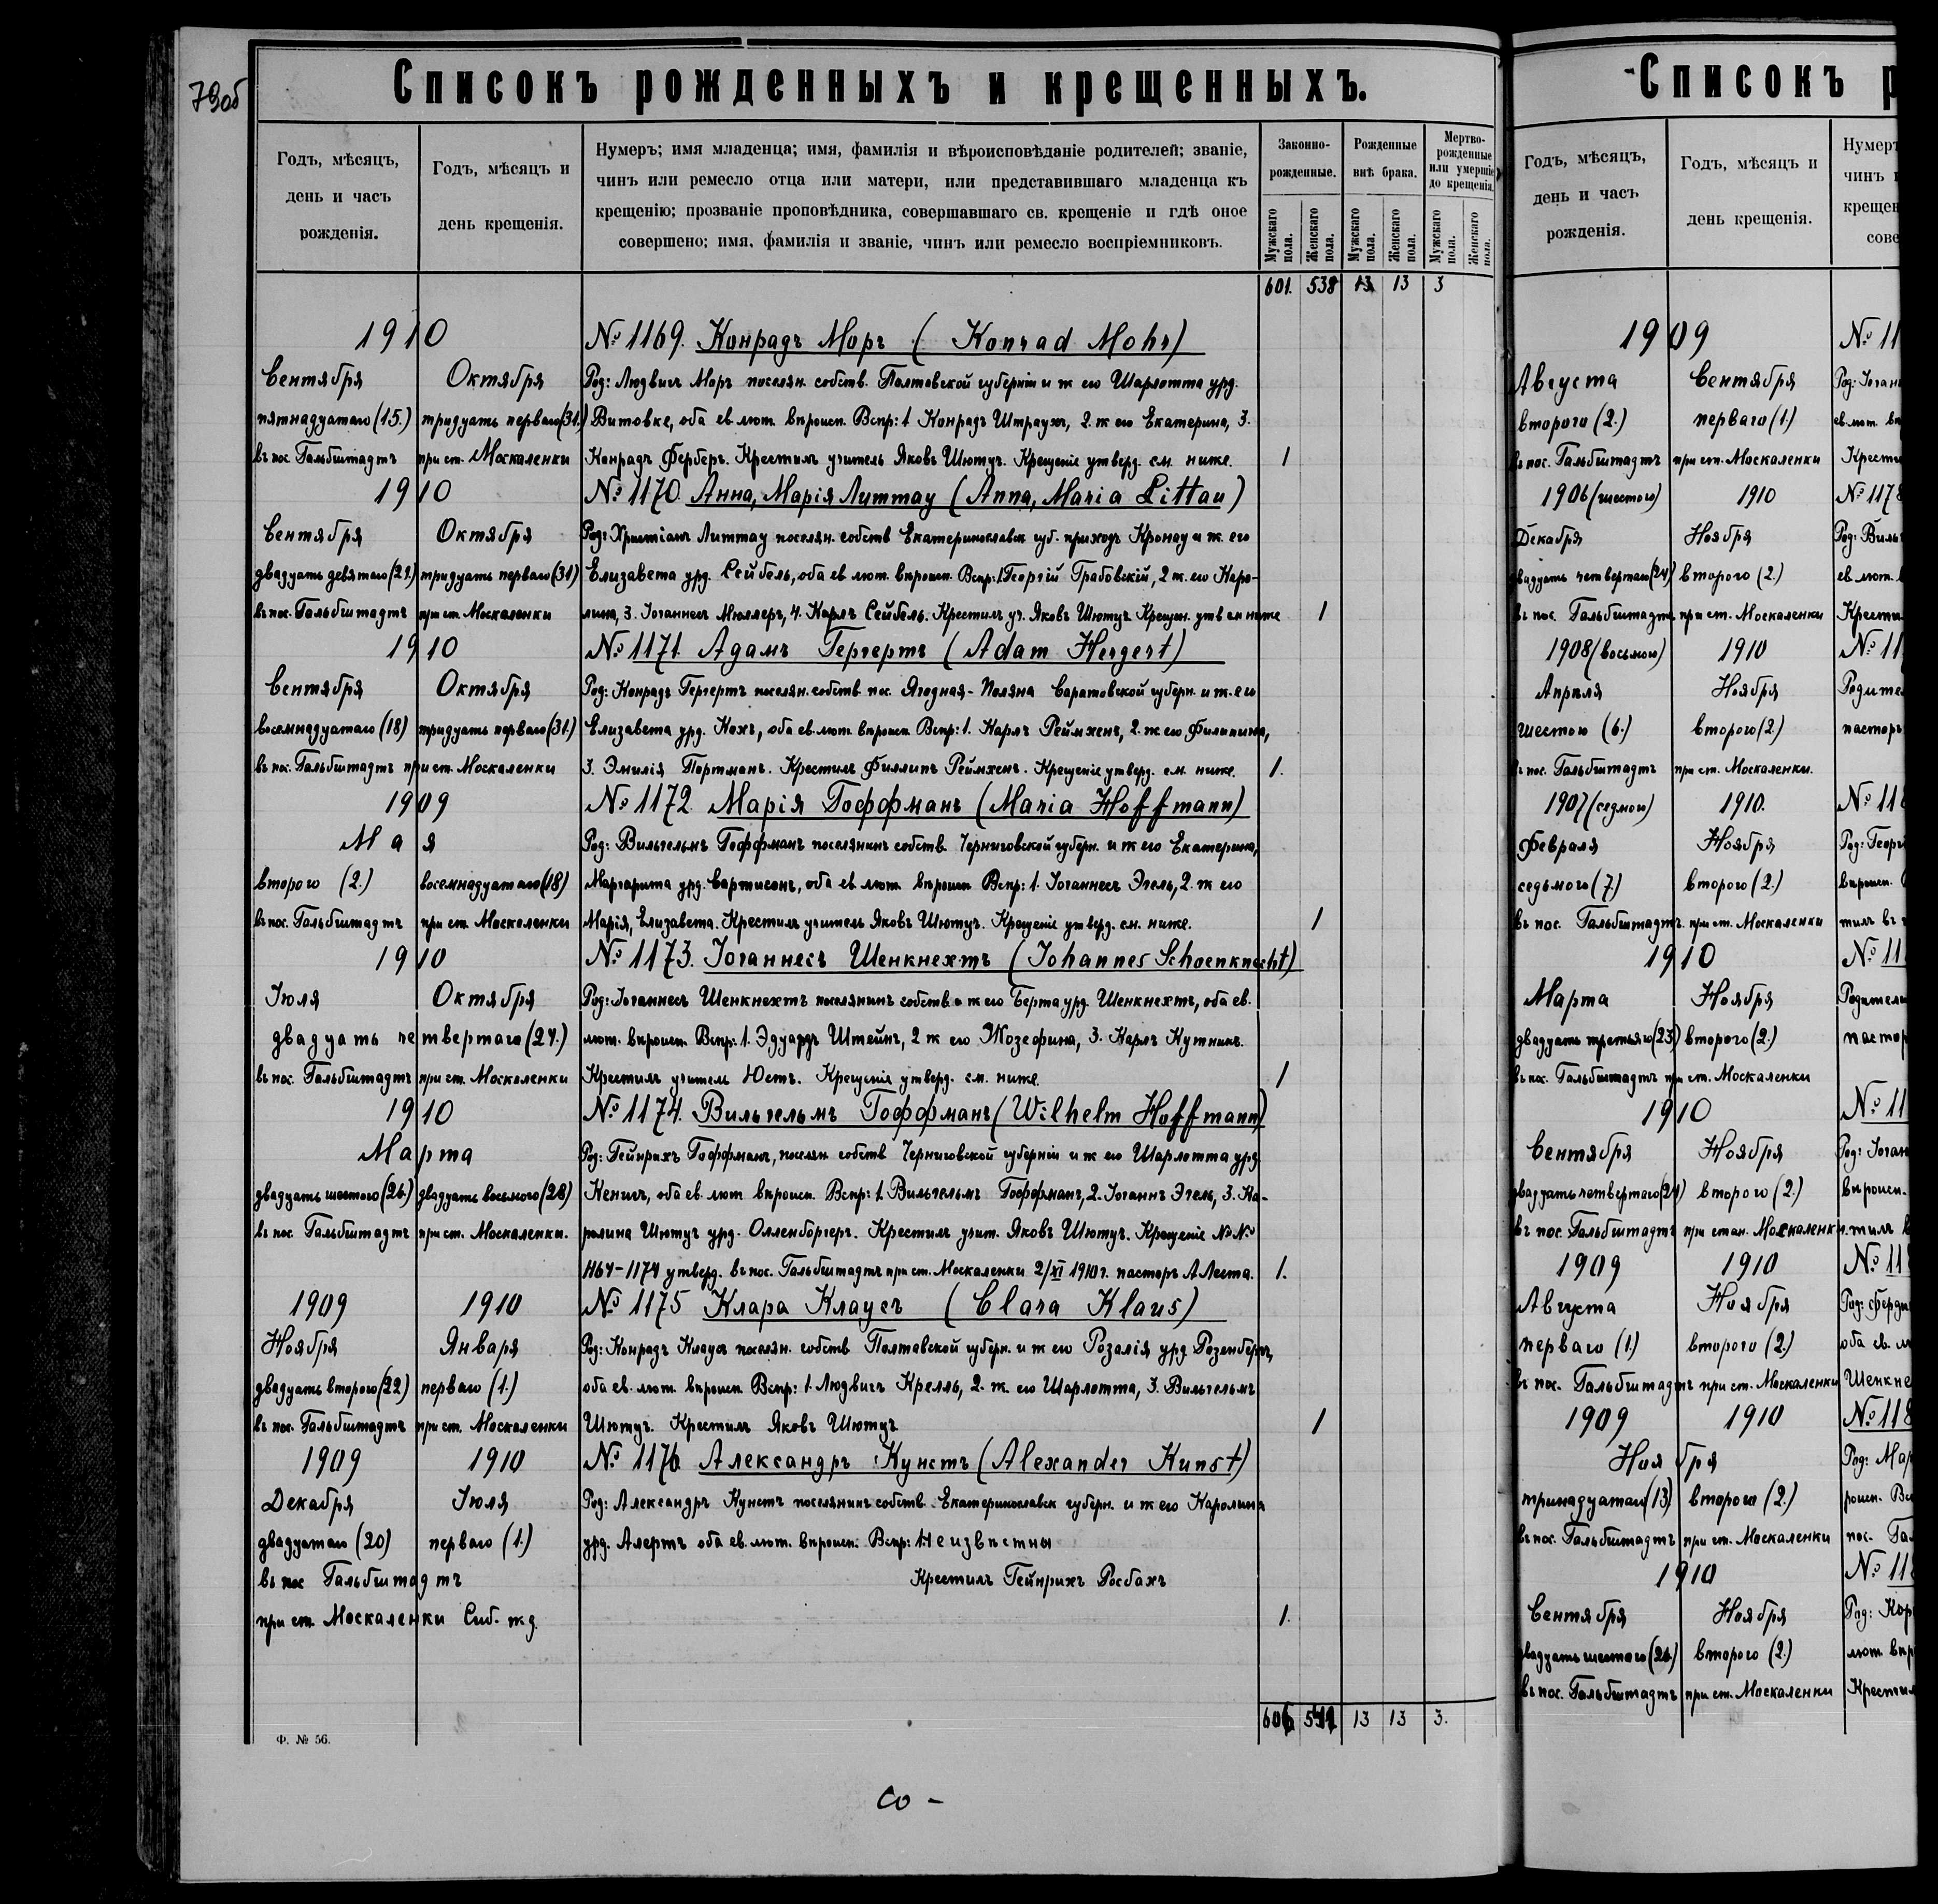 79об
Списокъ рожденныхъ и крещенныхъ.
Годъ, мѣсяцъ, день и часъ рожденія.
Годъ, мѣсяцъ и день крещенія.
Нумеръ; имя младенца; имя, фамилія и вѣроисповѣданіе родителей; званіе,
чинъ или ремесло отца или матери, или представившаго младенца къ
крещенію; прозваніе проповѣдника, совершавшаго св. крещеніе и гдѣ оное
совершено; имя, фамилія и званіе, чинъ или ремесло воспріемниковъ.
Законно-рожденные.
Рожденные внѣ брака.
Мертво-рожденные или умершіе до крещенія.
Мужскаго пола. Женскаго пола. Мужскаго пола. Женскаго пола. Мужскаго пола. Женскаго пола.
601. 538 13 13 3
1910 № 1169. Конрадъ Моръ (Konrad Mohr)
Сентября Октября Род: Людвигъ Моръ поселян. собств. Полтавской губерніи и ж его Шарлотта урд.
пятнадцатаго (15.) тридцать перваго (31.) Витовке, оба ев. лют. вѣроисп. Вспр: 1 Конрадъ Штраухъ, 2. ж его Екатерина, 3.
въ пос. Гальбштадтъ при ст. Москаленки Конрадъ Ферберъ. Крестилъ учитель Яковъ Шютцъ. Крещеніе утверд. см. ниже. 1
1910 № 1170. Анна, Марія Литтау (Anna, Maria Littau)
Сентября Октября Род: Христіанъ Литтау поселян. собств Екатеринославск губ. приходъ Кронау и ж. его
двадцать девятаго (29.) тридцать перваго (31) Елизавета урд. Сейбель, оба ев лют. вѣроисп. Вспр: 1 Георгій Грабовскій, 2 ж. его Каро-
въ пос. Гальбштадтъ при ст. Москаленки лина, 3. Іоганнесъ Мюллеръ, 4. Карлъ Сейбель. Крестилъ уч. Яковъ Шютцъ Крещен. утв см ниже 1
1910 № 1171. Адамъ Гергертъ (Adam Hergert)
Сентября Октября Род: Конрадъ Гергертъ поселян. собств. пос. Ягодная-Поляна Саратовской губерн. и ж. его
восемнадцатаго (18) тридцать перваго (31.) Елизавета урд. Кохъ, оба ев. лют. вѣроисп. Вспр: 1. Карлъ Реймхенъ, 2. ж его Филипина,
въ пос. Гальбштадтъ при ст. Москаленки 3. Эмилія Портманъ. Крестилъ Филлипъ Реймхенъ. Крещеніе утверд. см. ниже. 1.
1909 № 1172 Марія Гоффманъ (Maria Hoffmann)
Мая Род: Вильгельмъ Гоффманъ поселянинъ собств. Черниговской губерн. и ж его Екатерина,
второго (2.) восемнадцатаго (18) Маргарита урд. Сартисонъ, оба ев лют. вѣроисп Вспр: 1. Іоганнесъ Эгель, 2. ж его
въ пос. Гальбштадтъ при ст. Москаленки Марія, Елизавета. Крестилъ учитель Яковъ Шютцъ. Крещеніе утверд. см. ниже. 1
1910 № 1173. Іоганнесъ Шенкнехтъ (Johannes Schoenknecht)
Іюля Октября Род: Іоганнесъ Шенкнехтъ поселянинъ собств и ж его Берта урд. Шенкнехтъ, оба ев.
двадцать четвертаго (24.) лют. вѣроисп. Вспр: 1. Эдуардъ Штейнъ, 2 ж его Жозефина, 3. Карлъ Кутникъ.
въ пос. Гальбштадтъ при ст. Москаленки Крестилъ учитель Юстъ. Крещеніе утверд. см. ниже. 1
1910 № 1174. Вильгельмъ Гоффманъ (Wilhelm Hoffmann)
Марта Род: Гейнрихъ Гоффманъ, поселян собств Черниговской губерніи и ж его Шарлотта урд
двадцать шестого (26.) двадцать восьмого (28) Кенигъ, оба ев. лют вѣроисп. Вспр: 1. Вильгельмъ Гоффманъ, 2. Іоганнъ Эгель, 3. Ка-
въ пос. Гальбштадтъ при ст. Москаленки. ролина Шютцъ урд. Олленбюргеръ. Крестилъ учит. Яковъ Шютцъ. Крещеніе №№
1164-1174 утверд. въ пос. Гальбштадтъ при ст. Москаленки 2/XI 1910 г. пасторъ А Леста. 1.
1909 1910 № 1175 Клара Клаусъ (Clara Klaus)
Ноября Января Род: Конрадъ Клаусъ поселян. собств Полтавской губерн. и ж его Розалія урд Розенбергъ,
двадцать второго (22) перваго (1.) оба ев. лют. вѣроисп Вспр: 1. Людвигъ Крелль, 2. ж. его Шарлотта, 3. Вильгельмъ
въ пос. Гальбштадтъ при ст. Москаленки Шютцъ. Крестилъ Яковъ Шютцъ 1
1909 1910 № 1176 Александръ Кунстъ (Alexander Kunst)
Декабря Іюля Род: Александръ Кунстъ поселянинъ собств. Екатеринославск губерн. и ж его Каролина
двадцатаго (20) перваго (1.) урд. Алертъ оба ев. лют. вѣроисп. Вспр: Неизвѣстны
въ пос Гальбштадтъ Крестилъ Гейнрихъ Росбахъ
при ст. Москаленки Сиб. ж.д. 1.
606 541 13 13 3.
Ф. № 56.
Списокъ р
Годъ, мѣсяцъ, день и часъ рожденія.
Годъ, мѣсяцъ и день крещенія.
Нумеръ
чинъ и
крещен
сове
1909 № 11
Августа Сентября Род: Іоган
второго (2.) перваго (1.) ев. лют. вѣ
въ пос. Гальбштадтъ при ст. Москаленки Крести
1906 (шестого) 1910 № 1178
Декабря Ноября Род: Виль
двадцать четвертаго (24) второго (2.) ев лют.
въ пос. Гальбштадтъ при ст. Москаленки Крести
1908 (восьмого) 1910 № 11
Апреля Ноября Родите
шестого (6.) второго (2.) пасторъ
въ пос. Гальбштадтъ при ст. Москаленки.
1907 (седмого) 1910. № 118
Февраля Ноября Род: Георг
седьмого (7.) второго (2.) вѣроисп.
въ пос. Гальбштадтъ при ст. Москаленки тилъ въ
1910 № 11
Марта Ноября Родители
двадцать третьяго (23) второго (2.) пастор
въ пос. Гальбштадтъ при ст. Москаленки
1910 № 11
Сентября Ноября Род: Іоган
двадцать четвертаго (24) второго (2.) вѣроисп.
въ пос. Гальбштадтъ при стан. Москаленки тилъ
1909 1910 № 118
Августа Ноября Род: Ферди
перваго (1.) второго (2.) оба ев. л
въ пос. Гальбштадтъ при ст. Москаленки Шенкне
1909 1910 № 118
Ноября Род: Мар
тринадцатаго (13) второго (2.) роисп. Вс
въ пос. Гальбштадтъ при ст. Москаленки пос. Га
1910 № 118
Сентября Ноября Род: Кор
двадцать шестого (26.) второго (2.) лют. вѣр
въ пос. Гальбштадтъ при ст. Москаленки Крестил